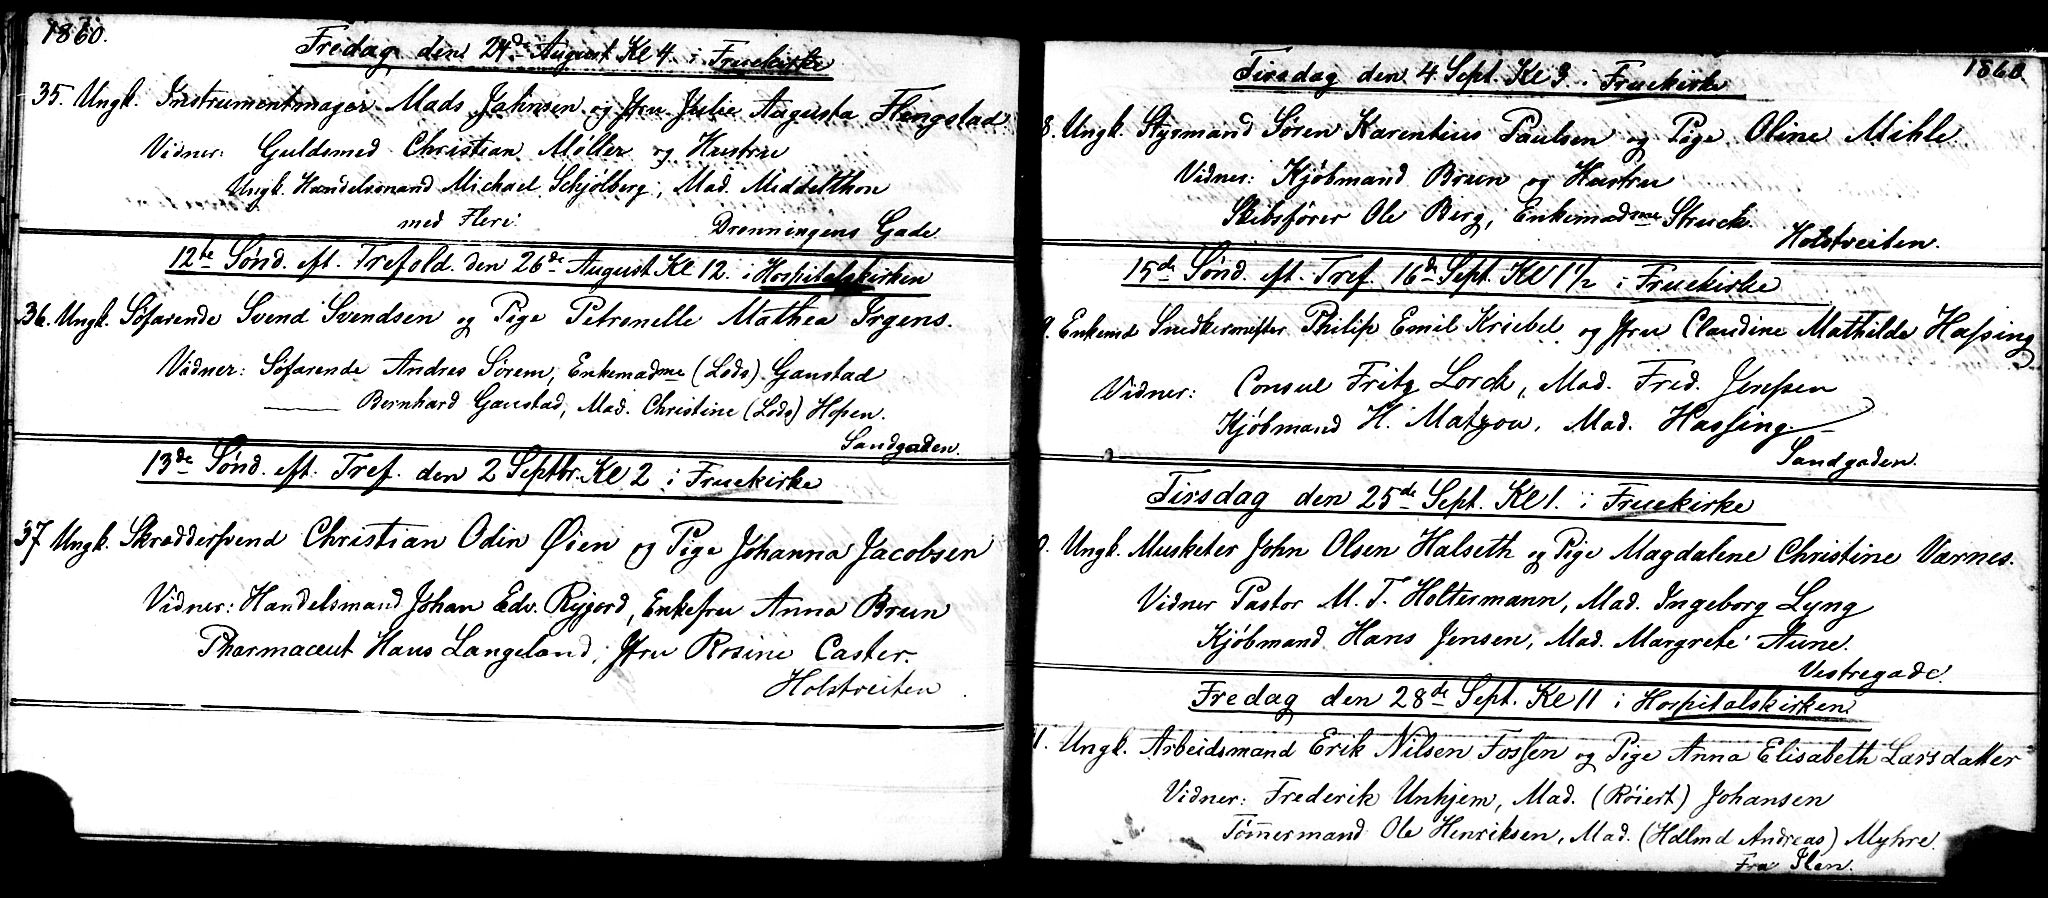 1860.
Fredag den 24de August Kl 4 i Fruekirke
35. Ungk. Instrumentmager Mads Jahnsen og Jfru Julie Augusta Flengstad
Vidner: Guldsmed Christian Møller og Hustru
Ungk. Handelsmand Michael Schjølberg, Mad. Middelthon
med Flere:
Dronningens Gade
12te Sønd. eft. Trefold. den 26de August Kl 12. i Hospitalskirken
36. Ungk. Søfarende Svend Svendsen og Pige Petronelle Mathea Irgens.
Vidner: Søfarende Andres Sørem, Enkemadme (Lods) Ganstad
Bernhard Ganstad, Mad. Christine (Lods) Hopen.
Sandgaden.
13de Sønd. eft. Tref. den 2 Septbr. Kl 2 i Fruekirke
37 Ungk. Skræddersvend Christian Odin Øien og Pige Johanna Jacobsen
Vidner: Handelsmand Johan Edv. Ryjord, Enkefru Anna Brun
Pharmaceut Hans Langeland, Jfru Rosine Caster.
Holstveiten.
1860
Tirsdag den 4. Sept. Kl 3 i Fruekirke
8. Ungk. Styrmand Søren Karentius Paulsen og Pige Oline Mihle.
Vidner: Kjøbmand Bruun og Hustru
Skibsfører Ole Berg, Enkemadme Struck.
Holstveiten.
15de Sønd. eft. Tref. 16de Sept. Kl 1 1/2 i Fruekirke
9. Enkemd Snedkermester Philip Emil Kriebel og Jfru Claudine Mathilde Hassing
Vidner: Consul Fritz Lorck, Mad. Fred. Jenssen
Kjøbmand H. Matzou, Mad. Hassing.
Sandgaden.
Tirsdag den 25de Sept. Kl 1. i Fruekirke
0. Ungk. Musketer John Olsen Halseth og Pige Magdalene Christine Værnes.
Vidner Pastor M. T. Holtermann, Mad. Ingeborg Lyng
Kjøbmand Hans Jensen, Mad. Margrete Aune.
Vestregade.
Fredag den 28de Sept. Kl 11 i Hospitalskirken.
1. Ungk. Arbeidsmand Erik Nilsen Fossen og Pige Anna Elisabeth Larsdatter
Vidner: Frederik Unhjem, Mad. (Røiert) Johansen
Tømmermand Ole Henriksen, Mad. (Hdlmd Andreas) Myhre.
Fra Ilen.